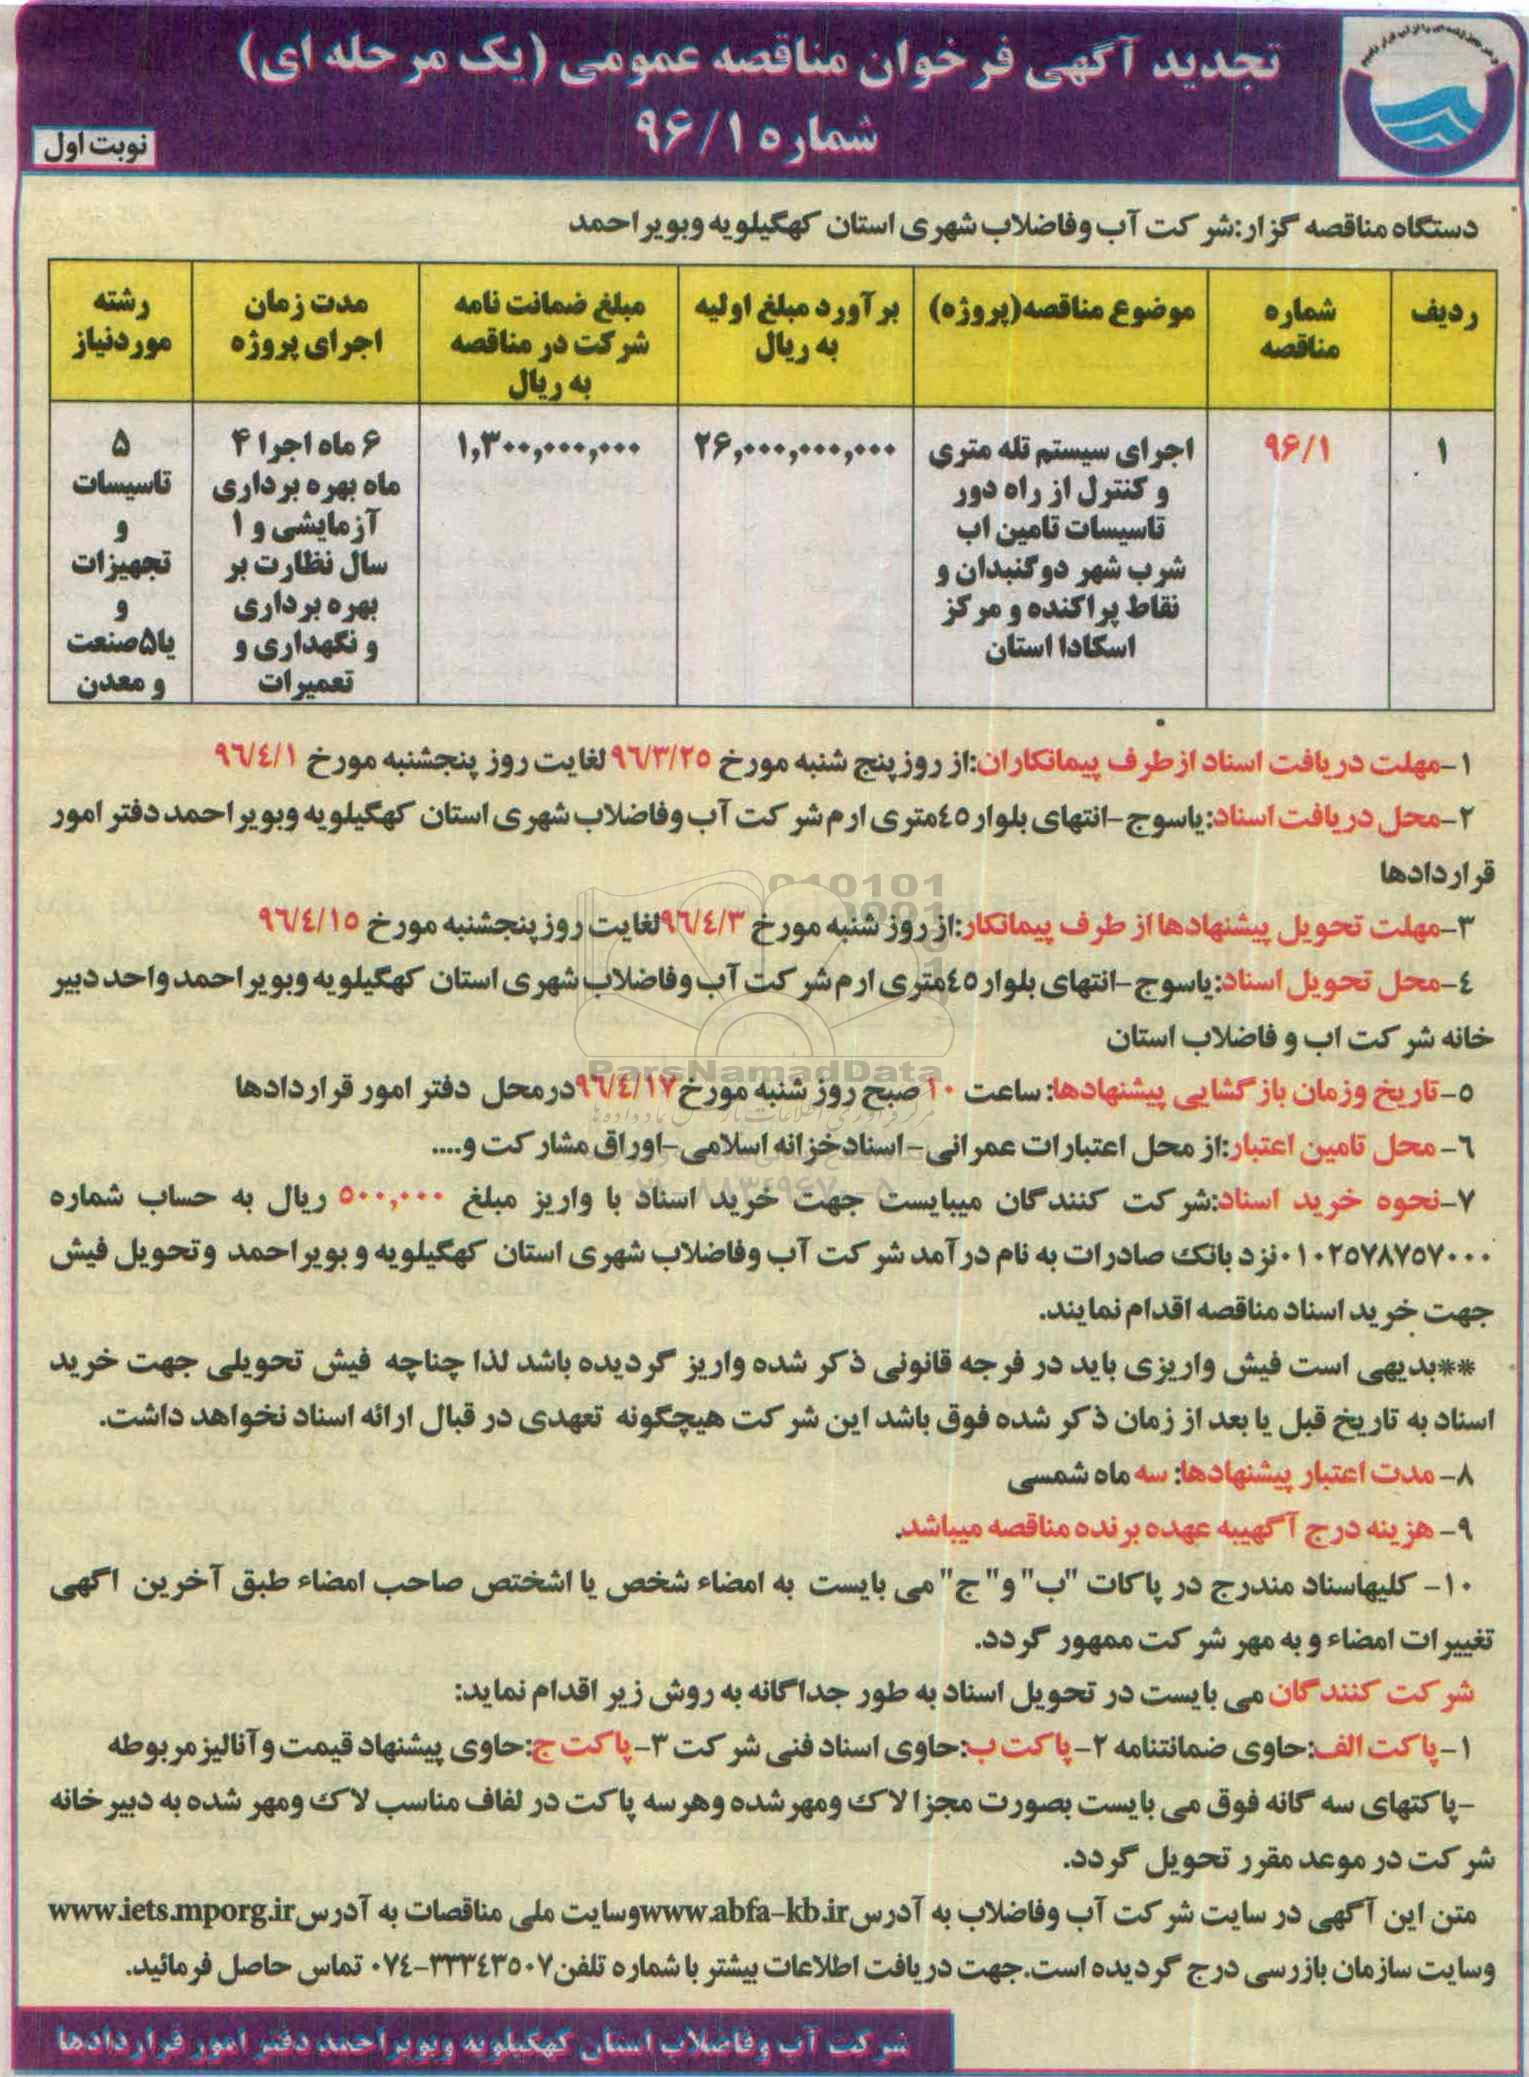 تجدید آگهی فرخوان مناقصه عمومی (یک مرحله ای)
شماره ۹۶/۱
نوبت اول
دستگاه مناقصه گزار:شرکت آب وفاضلاب شهری استان کهگیلویه وبویراحمد
ردیف
شماره
مناقصه
موضوع مناقصه(پروژه)
برآورد مبلغ اولیه
به ریال
مبلغ ضمانت نامه
شرکت در مناقصه
به ریال
مدت زمان
اجرای پروژه
رشته
موردنیاز
۱
۹۶/۱
اجرای سیستم تله متری
و کنترل از راه دور
تاسیسات تامین اب
شرب شهر دوگنبدان و
نقاط پراکنده و مرکز
اسکادا استان
۲۶,۰۰۰,۰۰۰,۰۰۰
۱,۳۰۰,۰۰۰,۰۰۰
۶ ماه اجرا ۴
ماه بهره برداری
آزمایشی و ۱
سال نظارت بر
بهره برداری
و نگهداری و
تعمیرات
۵
تاسیسات
و
تجهیزات
و
یا۵صنعت
و معدن
۱-مهلت دریافت اسناد ازطرف پیمانکاران:از روزپنج شنبه مورخ ۹۶/۳/۲۵ لغایت روز پنجشنبه مورخ ۹۶/٤/۱
۲-محل دریافت اسناد:یاسوج -انتهای بلوار٤٥متری ارم شرکت آب وفاضلاب شهری استان کهگیلویه وبویراحمد دفتر امور
قراردادها
۳-مهلت تحویل پیشنهادها از طرف پیمانکار:از روز شنبه مورخ ۹۶/٤/۳لغایت روزپنجشنبه مورخ ۹۶/٤/۱٥
٤-محل تحویل اسناد:یاسوج -انتهای بلوار٤٥متری ارم شرکت آب وفاضلاب شهری استان کهگیلویه وبویراحمد واحد دبیر
خانه شرکت اب و فاضلاب استان
٥-تاریخ وزمان بازگشایی پیشنهادها: ساعت ۱۰ صبح روز شنبه مورخ ۹۶/٤/۱۷درمحل دفتر امور قراردادها
٦- محل تامین اعتبار:از محل اعتبارات عمرانی-اسنادخزانه اسلامی-اوراق مشارکت و....
۷-نحوه خرید اسناد:شرکت کنندگان میبایست جهت خرید اسناد با واریز مبلغ ٥۰۰,۰۰۰ ریال به حساب شماره
۰۱۰۲٥۷۸۷٥۷۰۰۰نزد بانک صادرات به نام درآمد شرکت آب وفاضلاب شهری استان کهگیلویه و بویراحمد وتحویل فیش
جهت خرید اسناد مناقصه اقدام نمایند.
**بدیهی است فیش واریزی باید در فرجه قانونی ذکر شده واریز گردیده باشد لذا چناچه فیش تحویلی جهت خرید
اسناد به تاریخ قبل یا بعد از زمان ذکر شده فوق باشد این شرکت هیچگونه تعهدی در قبال ارائه اسناد نخواهد داشت.
۸- مدت اعتبار پیشنهادها: سه ماه شمسی
۹- هزینه درج آگهیبه عهده برنده مناقصه میباشد.
۱۰- کلیهاسناد مندرج در پاکات "ب" و" ج" می بایست به امضاء شخص یا اشختص صاحب امضاء طبق آخرین اگهی
تغییرات امضاء و به مهر شرکت ممهور گردد.
شرکت کنندگان می بایست در تحویل اسناد به طور جداگانه به روش زیر اقدام نماید:
۱-پاکت الف:حاوی ضمانتنامه ۲-پاکت ب:حاوی اسناد فنی شرکت ۳-پاکت ج:حاوی پیشنهاد قیمت وآنالیزمربوطه
-پاکتهای سه گانه فوق می بایست بصورت مجزا لاک ومهرشده وهرسه پاکت در لفاف مناسب لاک ومهر شده به دبیرخانه
شرکت در موعد مقرر تحویل گردد.
متن این آگهی در سایت شرکت آب وفاضلاب به آدرسwww.abfa-kb.irوسایت ملی مناقصات به آدرسwww.iets.mporg.ir
وسایت سازمان بازرسی درج گردیده است.جهت دریافت اطلاعات بیشتر با شماره تلفن۰۷٤-۳۳۳٤۳٥۰۷ تماس حاصل فرمائید.
شرکت آب وفاضلاب استان کهگیلویه وبویراحمد، دفتر امور قراردادها
ParsNamadData